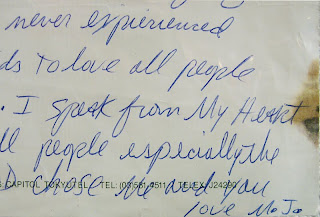 never experienced
ds to love all people
. I speak from My Heart
ll people especially the
CAPITOL TOKYU TEL. TEL: (03)581-4511 TELEX: J24290
chose Me and you
love MoJo